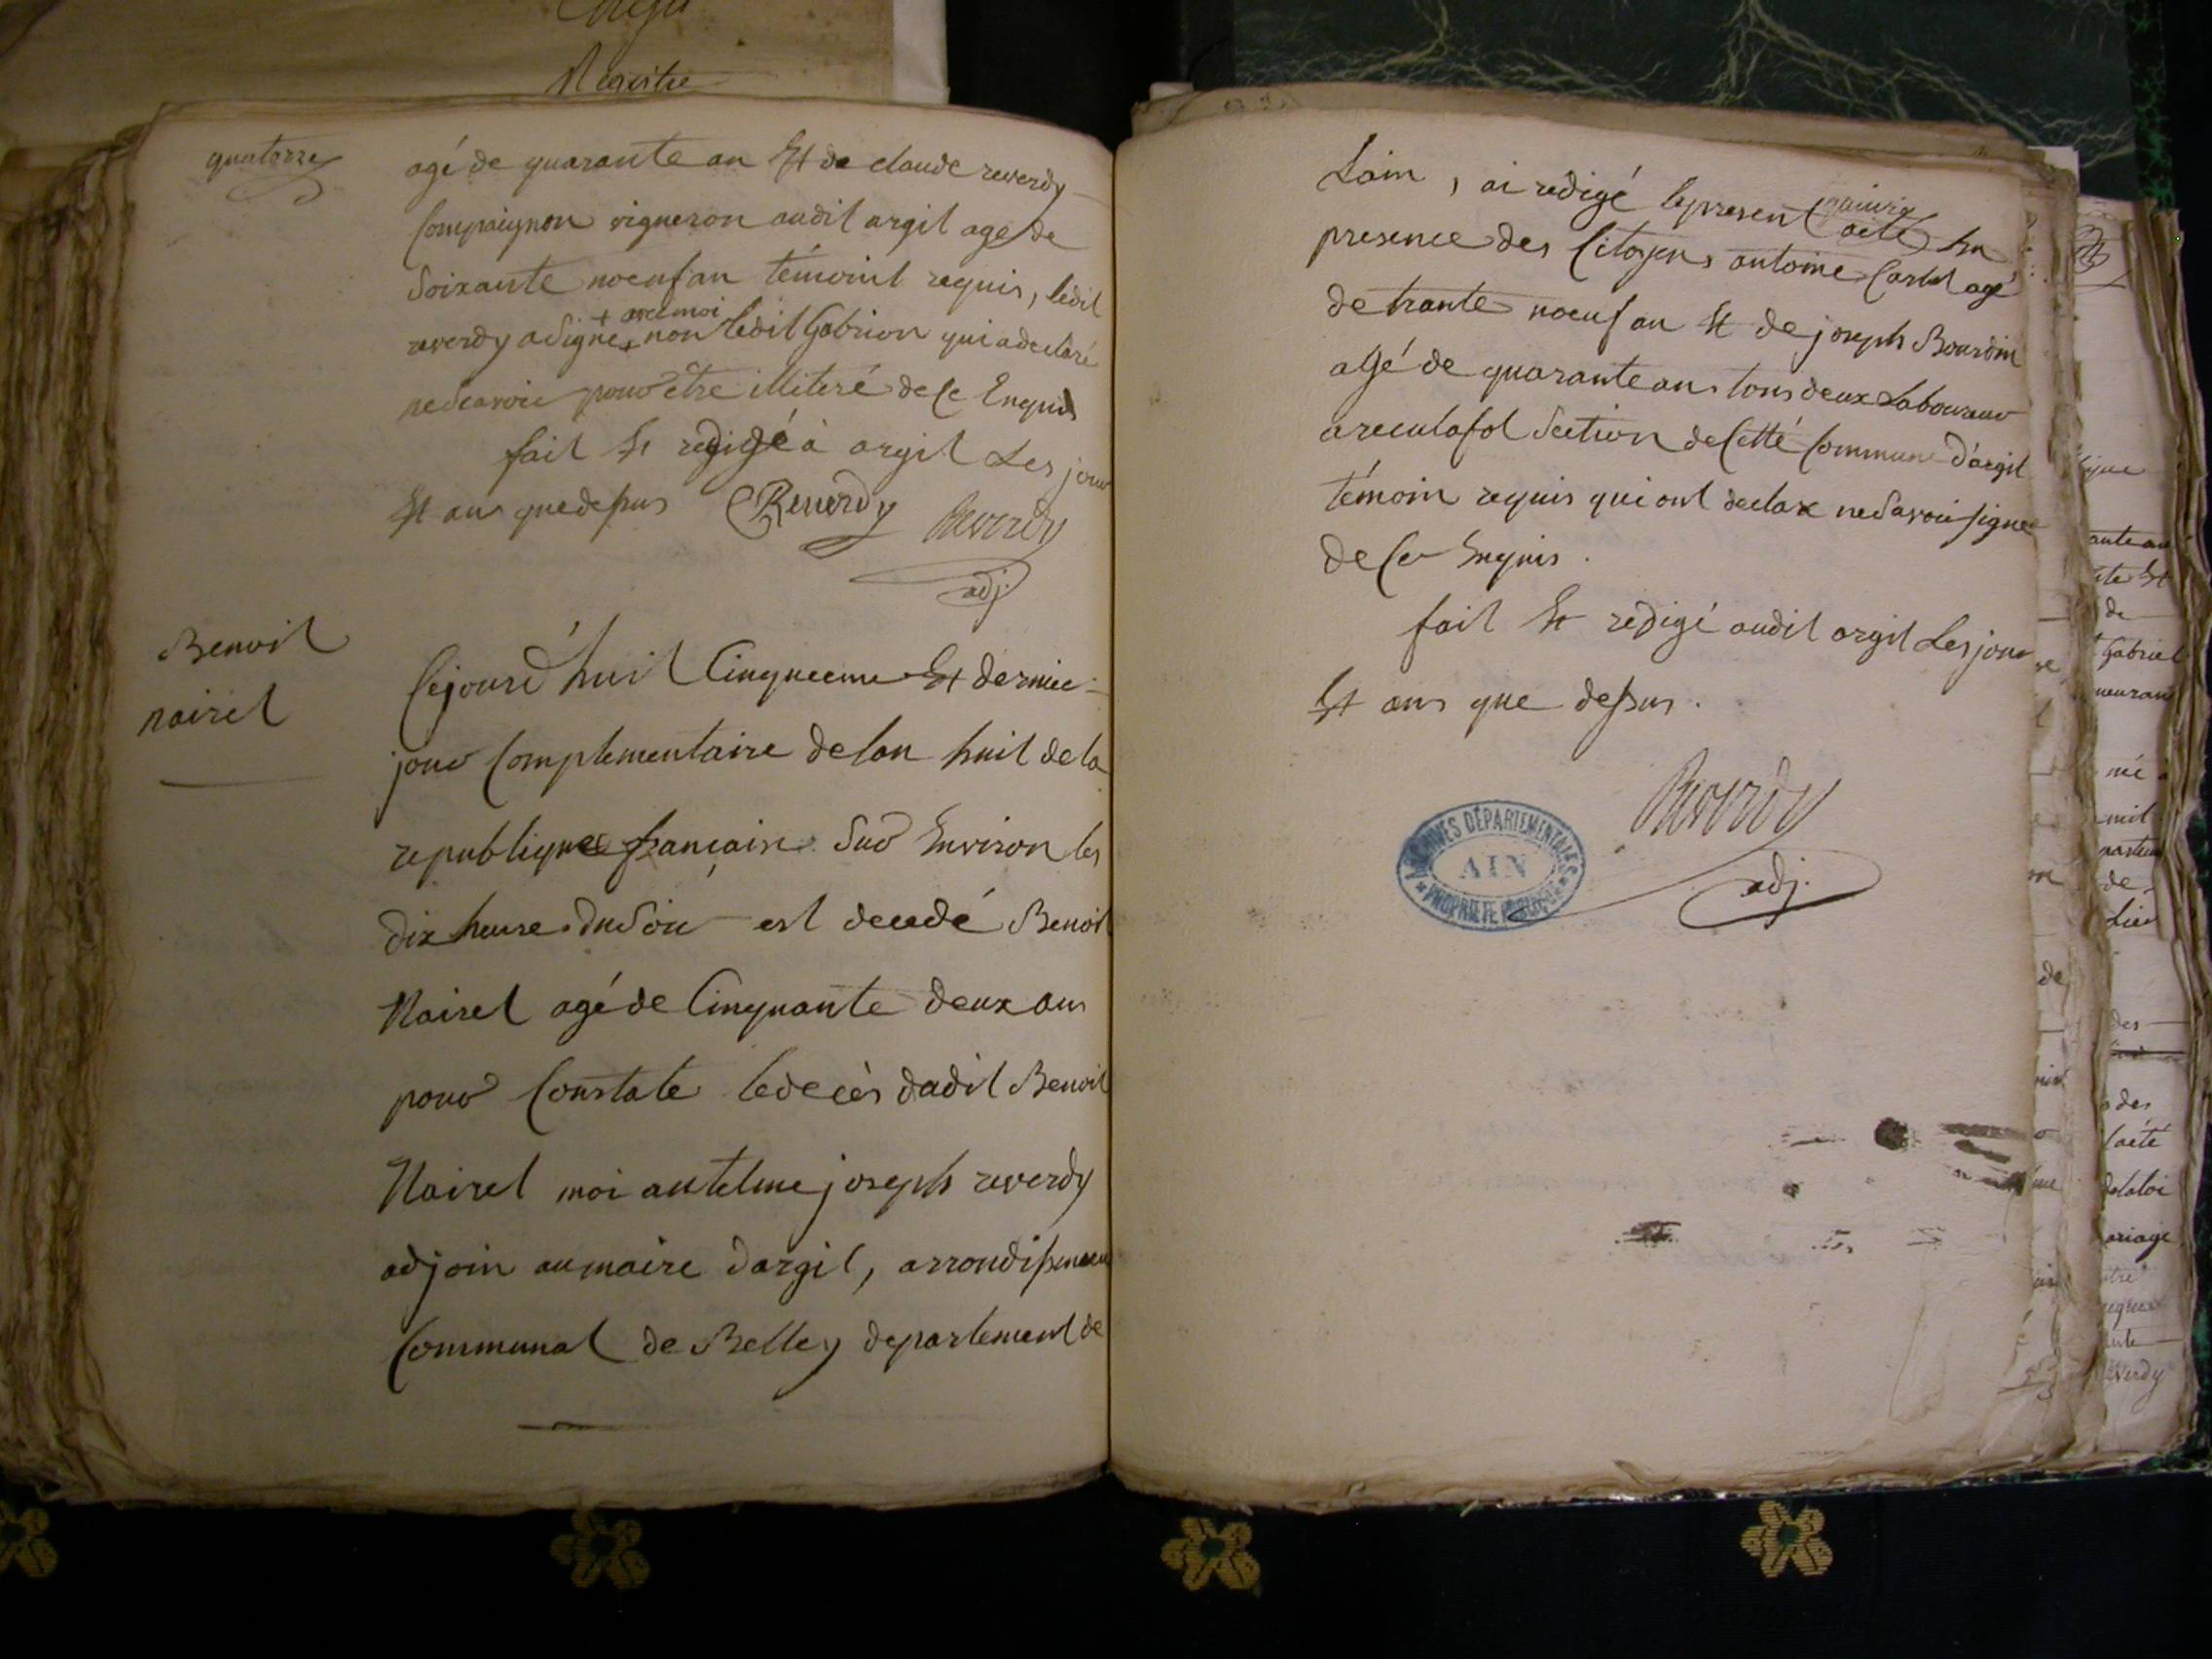 Registre
quatorze
agé de quarante an Et de claude reverdy
Compaignon vigneron audit argil age de
Soixante noeuf an témoint requis, ledit
+ avec moi
reverdy a Signé + non ledit Gabrion qui a declaré
ne Scavoir pour être illiteré de Ce Enquis
fait Et redigé à argil Les jour
Et ans que dessus CReverdy Reverdy
adj.
Benoit
nairet
Cejourd'huit Cinquieme Et dernier
jour Complementaire de lan huit de la
republique française Sur Environ les
dix heure du Soir est decedé Benoit
Nairet agé de Cinquante deux ans
pour Constate le decès dudit Benoit
Nairet moi antelme joseph reverdy
adjoin au maire dargil, arrondissemen
Communal de Belley departement de
Lain, ai redigé le present acte En
presence des Citoyens antoine Carlet agé
de trante noeuf an Et de joseph Bourdin
agé de quarante ans tous deux Laboureur
a reculafol Section de Cette Commune d'argil
témoin requis qui ont declare ne Savoir signer
de Ce Enquis.
fait Et redigé audit argil Les jour
Et ans que dessus.
Reverdy
adj.
ARCHIVES DÉPARTEMENTALES
AIN
PROPRIÉTÉ PUBLIQUE
ante an
de
Gabriel
mil
de
Lieu
de
des
des
de la loi
ariage